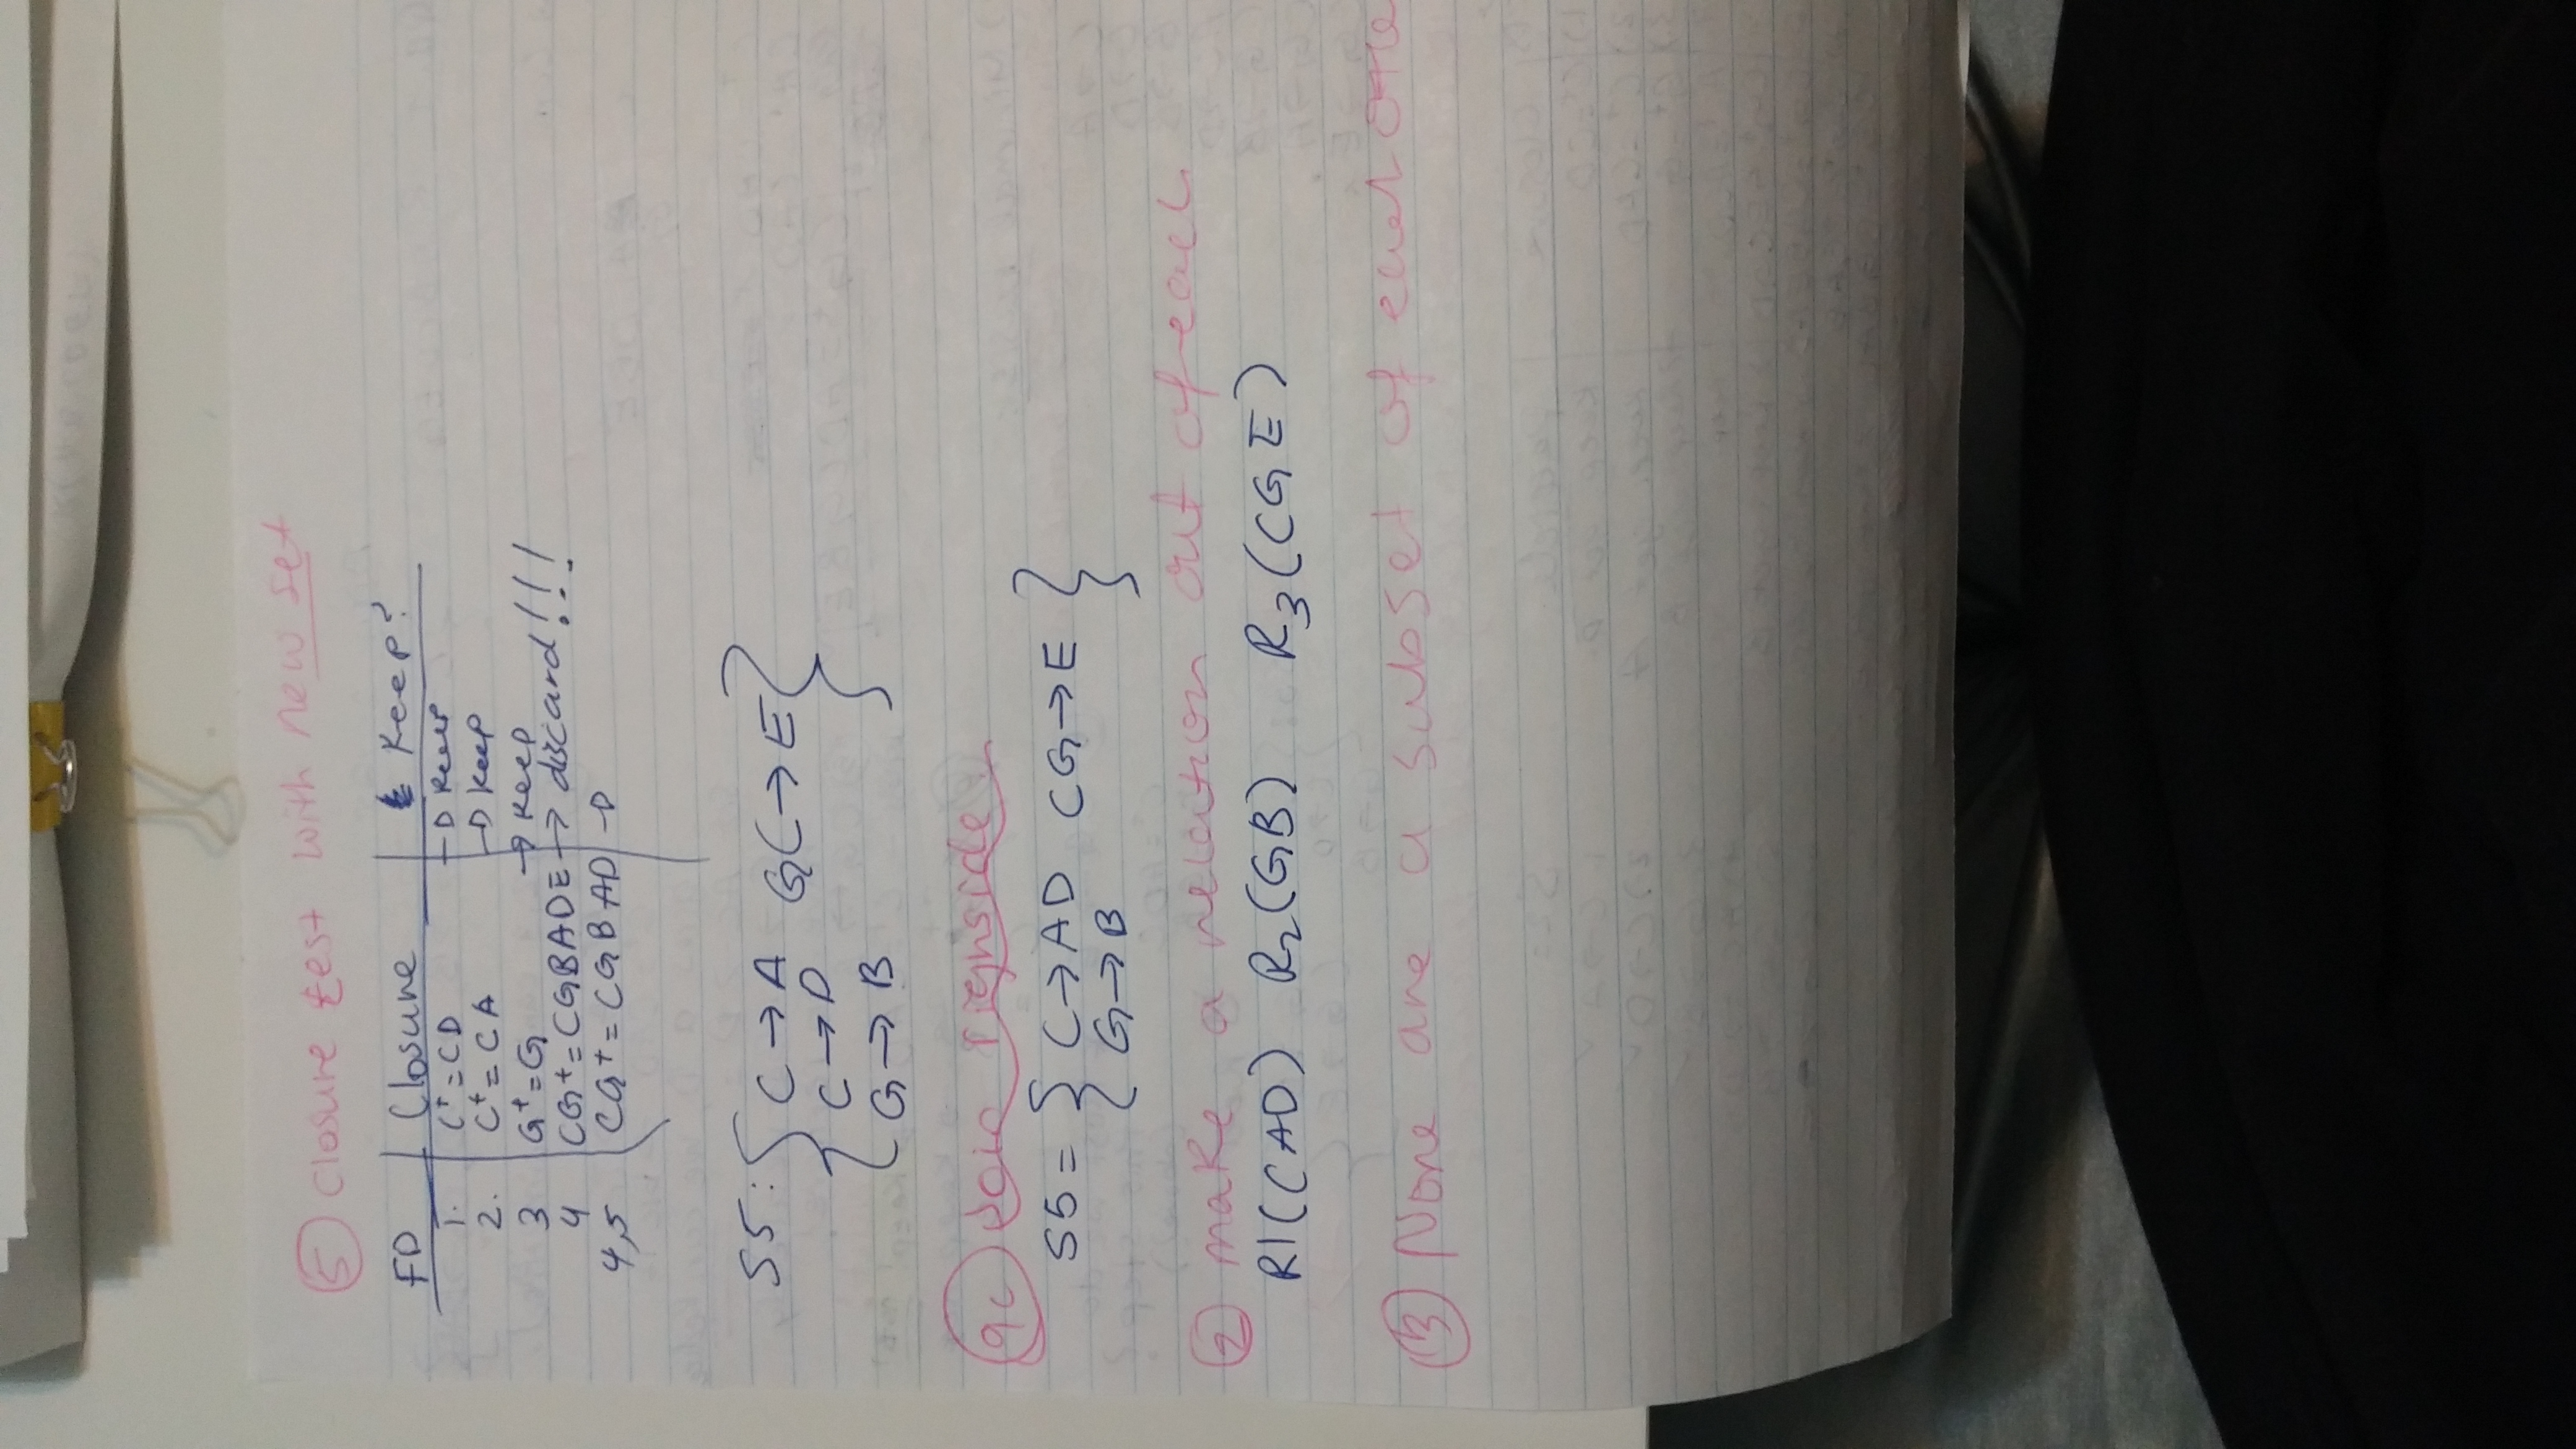 5 closure test with new set
FD Closure Keep?
1. C+ = CD → Keep
2. C+ = CA → Keep
3 G+ = G → Keep
4 CG+ = CGBADE → discard!!!
4,5 CG+ = CGBAD →
S5: { C → A GC → E }
C → D
G → B
S5 = { C → AD CG → E }
G → B
2 make a relation out of each
R1(CAD) R2(GB) R3(CGE)
3 None are a subset of each